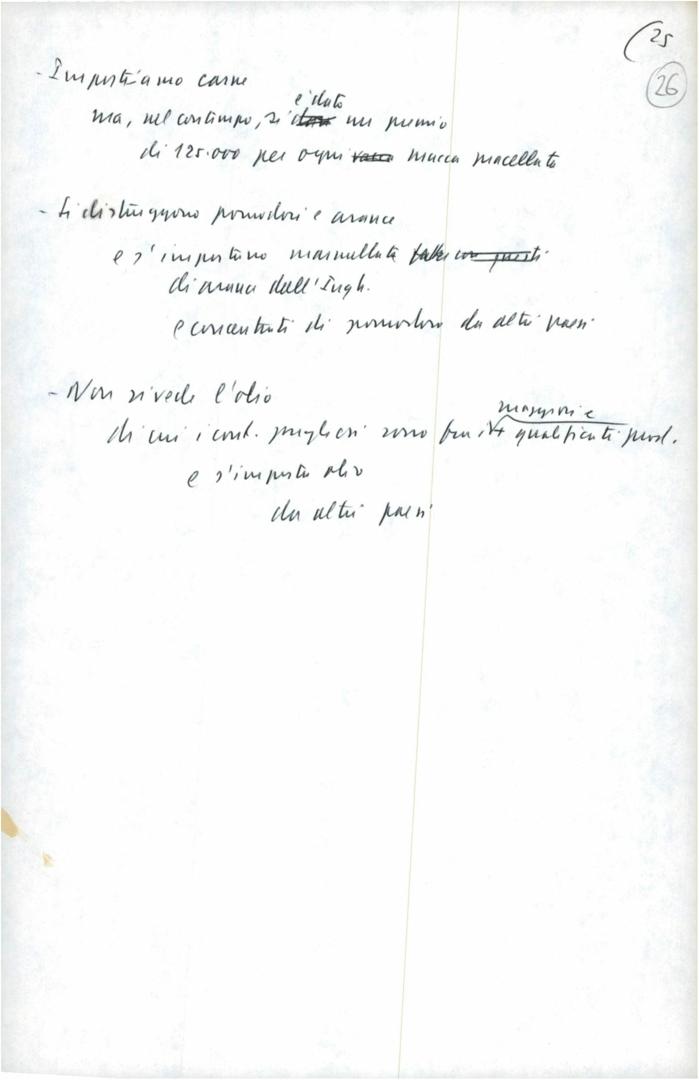 25
26
- Importiamo carne
è dato
ma, nel contempo, si un premio
di 125.000 per ogni mucca macellata
- Si distruggono pomodori e arance
e s'importano marmellata
di arance dall'Ingh.
e concentrati di pomodoro da altri paesi
- Non si vede l'olio
maggiori e
di cui i cont. pugliesi sono fra i qualificati prod.
e s'importa olio
da altri paesi